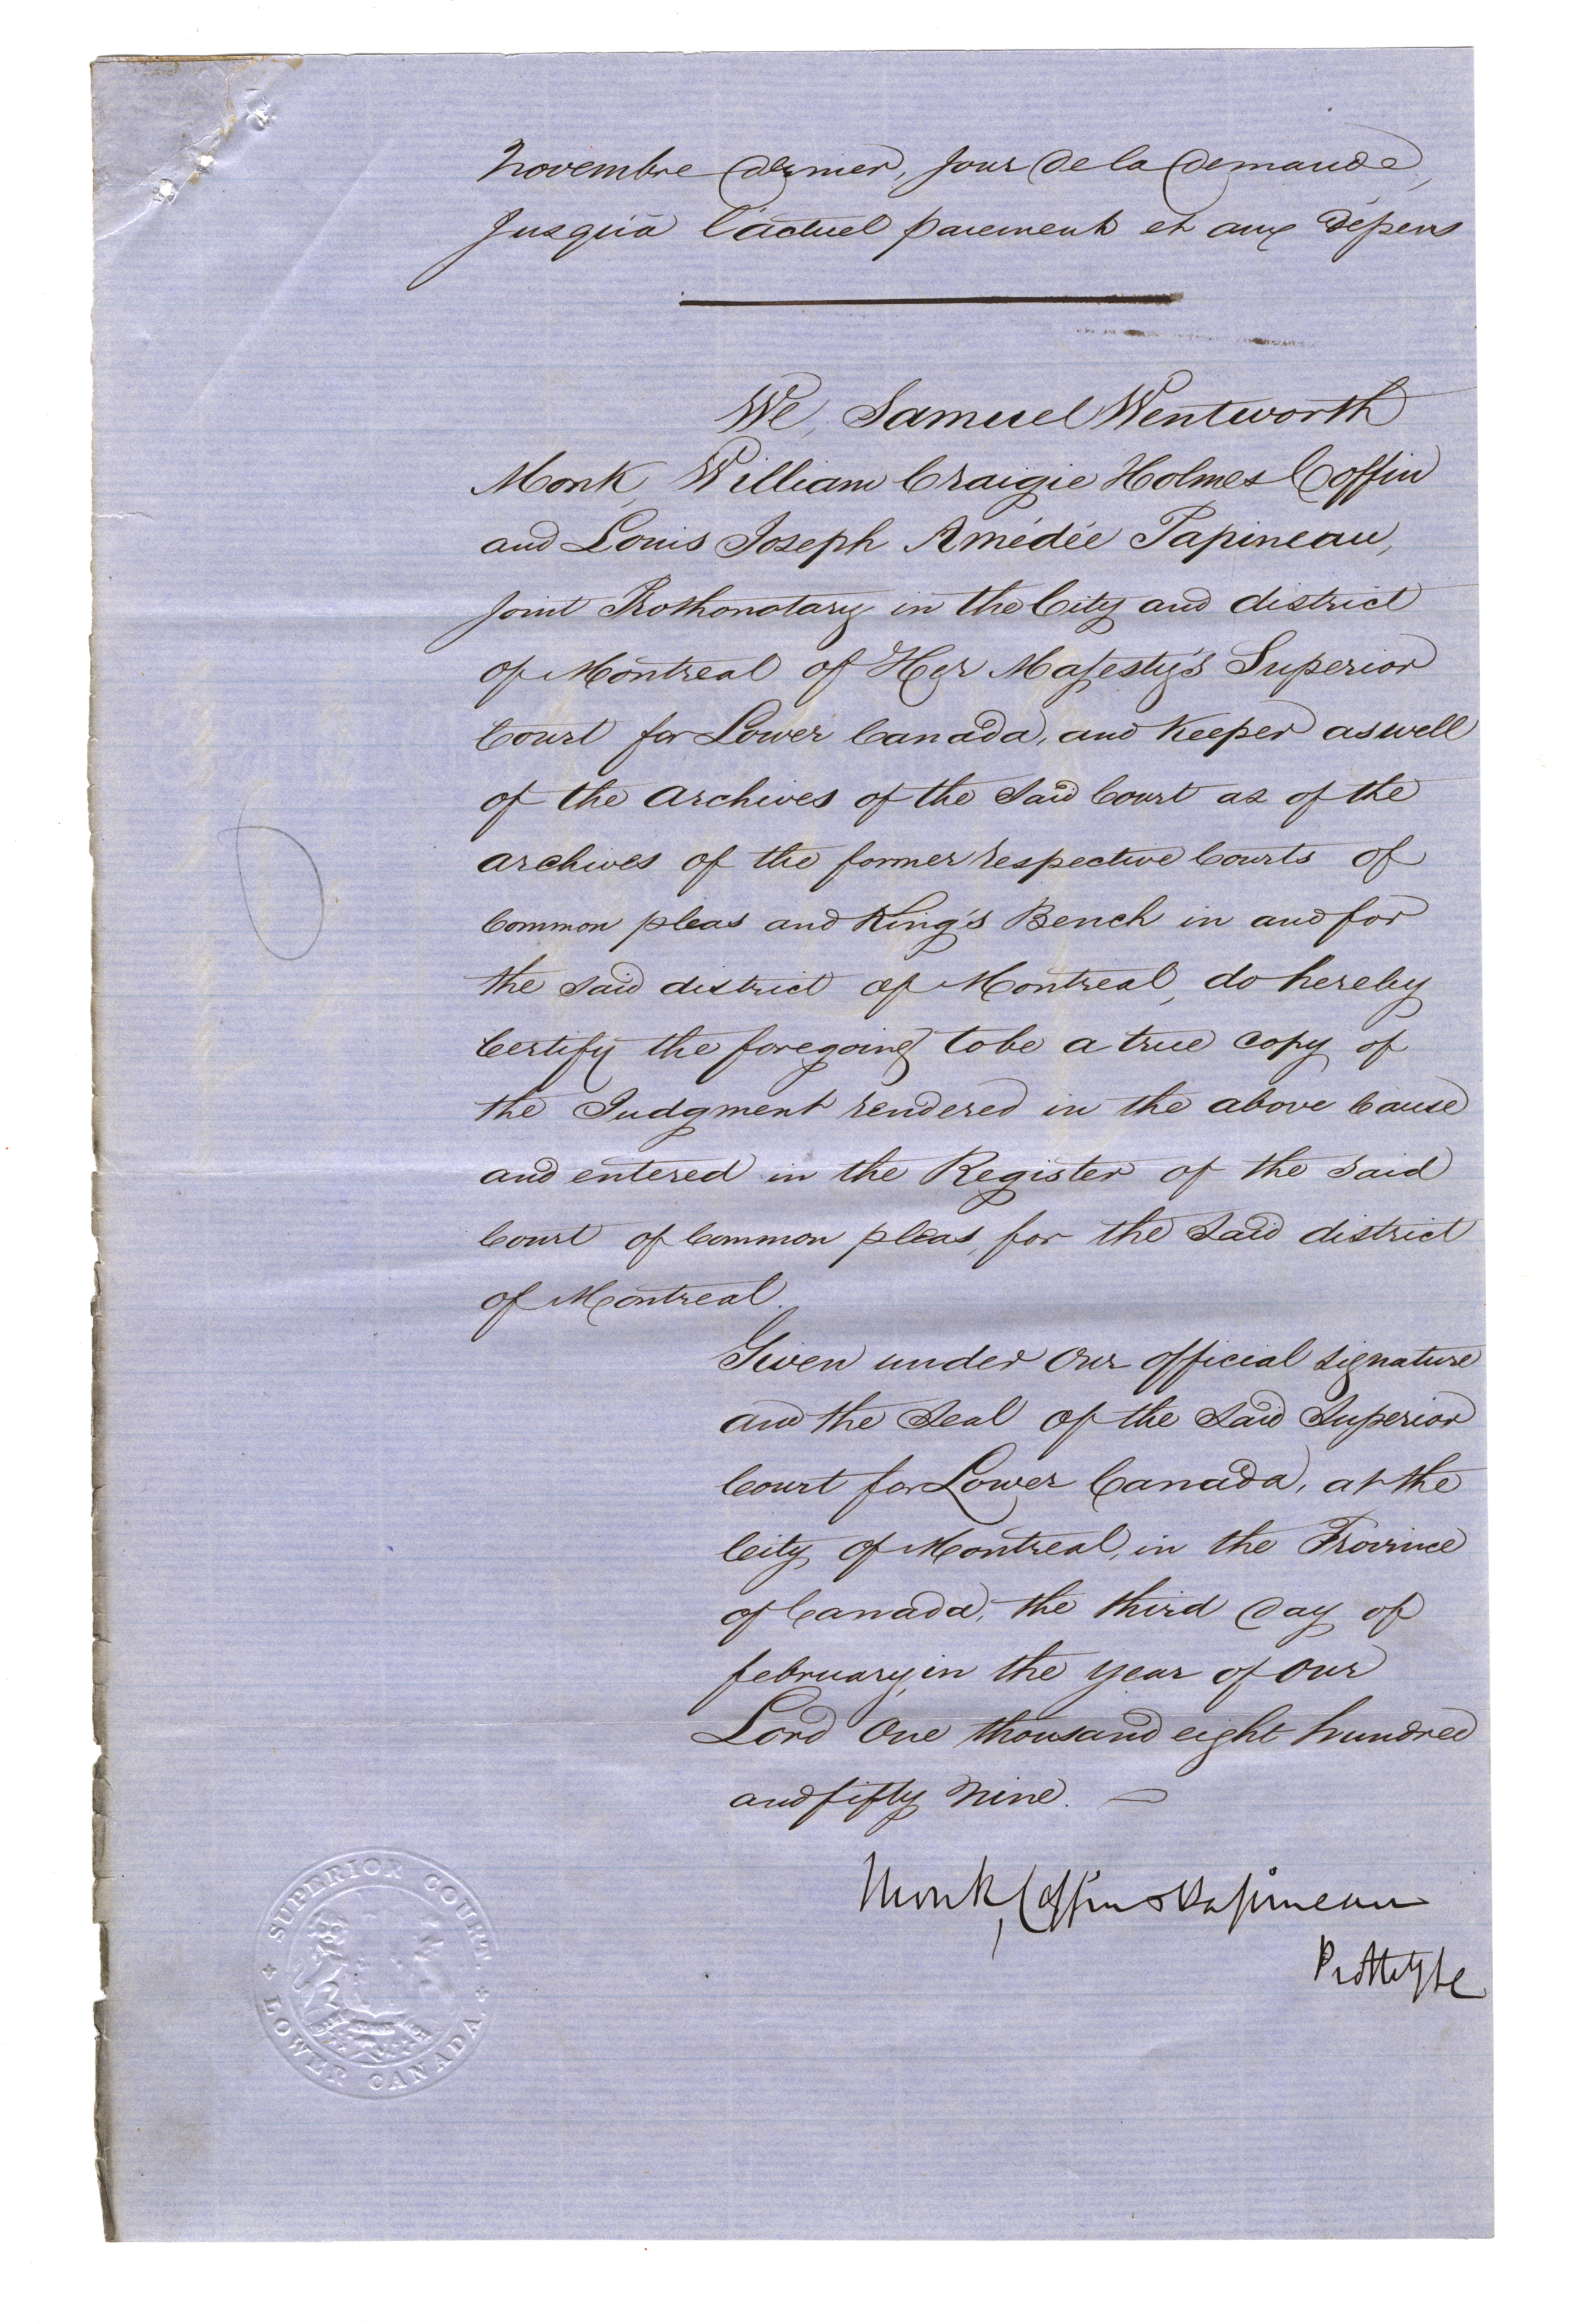 Novembre dernier, jour de la demande,
Jusqu'à l'actuel paiement et aux dépens
We, Samuel Wentworth
Monk, William Craigie Holmes Coffin
and Louis Joseph Amédée Papineau,
Joint Prothonotary in the City and district
of Montreal of Her Majesty's Superior
Court for Lower Canada, and Keeper aswell
of the archives of the Said Court as of the
archives of the former respective Courts of
Common pleas and King's Bench in and for
the said district of Montreal, do hereby
Certify the foregoing to be a true copy of
the Judgment rendered in the above Cause
and entered in the Register of the said
Court of Common pleas, for the Said district
of Montreal.
Given under our official signature
and the Seal of the Said Superior
Court for Lower Canada, at the
City of Montreal, in the Province
of Canada, the third day of
february, in the year of our
Lord One thousand eight hundred
and fifty nine. —
Monk, Coffin & Papineau
SUPERIOR COURT.
LOWER CANADA.